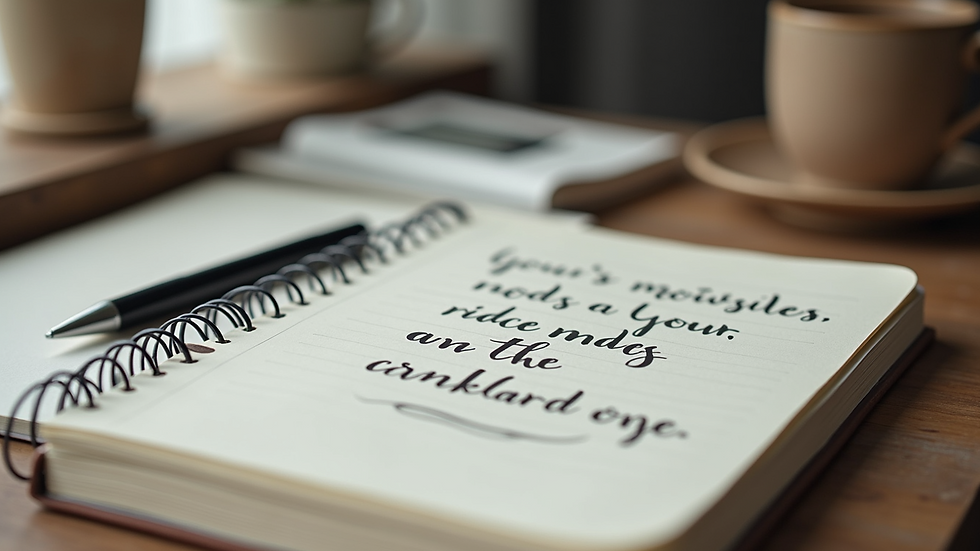 Your's moiwsiles,
nods a Your.
ridce mdes
am the
cırnklard oye.